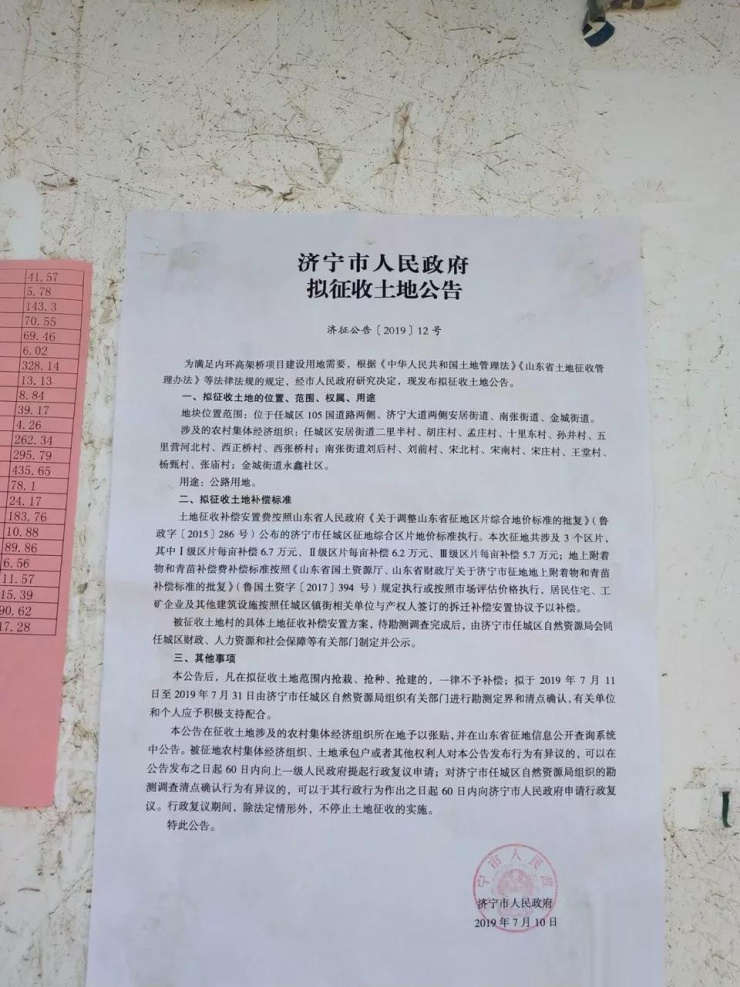 济宁市人民政府
拟征收土地公告
济征公告〔2019〕12号
为满足内环高架桥项目建设用地需要，根据《中华人民共和国土地管理法》《山东省土地征收管
理办法》等法律法规的规定，经市人民政府研究决定，现发布拟征收土地公告。
一、拟征收土地的位置、范围、权属、用途
地块位置范围：位于任城区105国道路两侧、济宁大道两侧安居街道、南张街道、金城街道。
涉及的农村集体经济组织：任城区安居街道二里半村、胡庄村、孟庄村、十里东村、孙井村、五
里营河北村、西正桥村、西张桥村；南张街道刘后村、刘前村、宋北村、宋南村、宋庄村、王堂村、
杨甄村、张庙村；金城街道永鑫社区。
用途：公路用地。
二、拟征收土地补偿标准
土地征收补偿安置费按照山东省人民政府《关于调整山东省征地区片综合地价标准的批复》（鲁
政字〔2015〕286号）公布的济宁市任城区征地综合区片地价标准执行。本次征地共涉及3个区片，
其中Ⅰ级区片每亩补偿6.7万元、Ⅱ级区片每亩补偿6.2万元、Ⅲ级区片每亩补偿5.7万元；地上附着
物和青苗补偿费补偿标准按照《山东省国土资源厅、山东省财政厅关于济宁市征地地上附着物和青苗
补偿标准的批复》（鲁国土资字〔2017〕394号）规定执行或按照市场评估价格执行，居民住宅、工
矿企业及其他建筑设施按照任城区镇街相关单位与产权人签订的拆迁补偿安置协议予以补偿。
被征收土地村的具体土地征收补偿安置方案，待勘测调查完成后，由济宁市任城区自然资源局会同
任城区财政、人力资源和社会保障等有关部门制定并公示。
三、其他事项
本公告后，凡在拟征收土地范围内抢栽、抢种、抢建的，一律不予补偿；拟于2019年7月11
日至2019年7月31日由济宁市任城区自然资源局组织有关部门进行勘测定界和清点确认，有关单位
和个人应予积极支持配合。
本公告在征收土地涉及的农村集体经济组织所在地予以张贴，并在山东省征地信息公开查询系统
中公告。被征地农村集体经济组织、土地承包户或者其他权利人对本公告发布行为有异议的，可以在
公告发布之日起60日内向上一级人民政府提起行政复议申请；对济宁市任城区自然资源局组织的勘
测调查清点确认行为有异议的，可以于其行政行为作出之日起60日内向济宁市人民政府申请行政复
议。行政复议期间，除法定情形外，不停止土地征收的实施。
特此公告。
济宁市人民政府
2019年7月10日
41.57
5.78
143.3
70.55
69.46
6.02
328.14
13.13
8.84
39.17
4.26
262.34
295.79
435.65
78.1
24.17
183.76
10.88
89.86
6.56
11.57
15.39
90.62
17.28